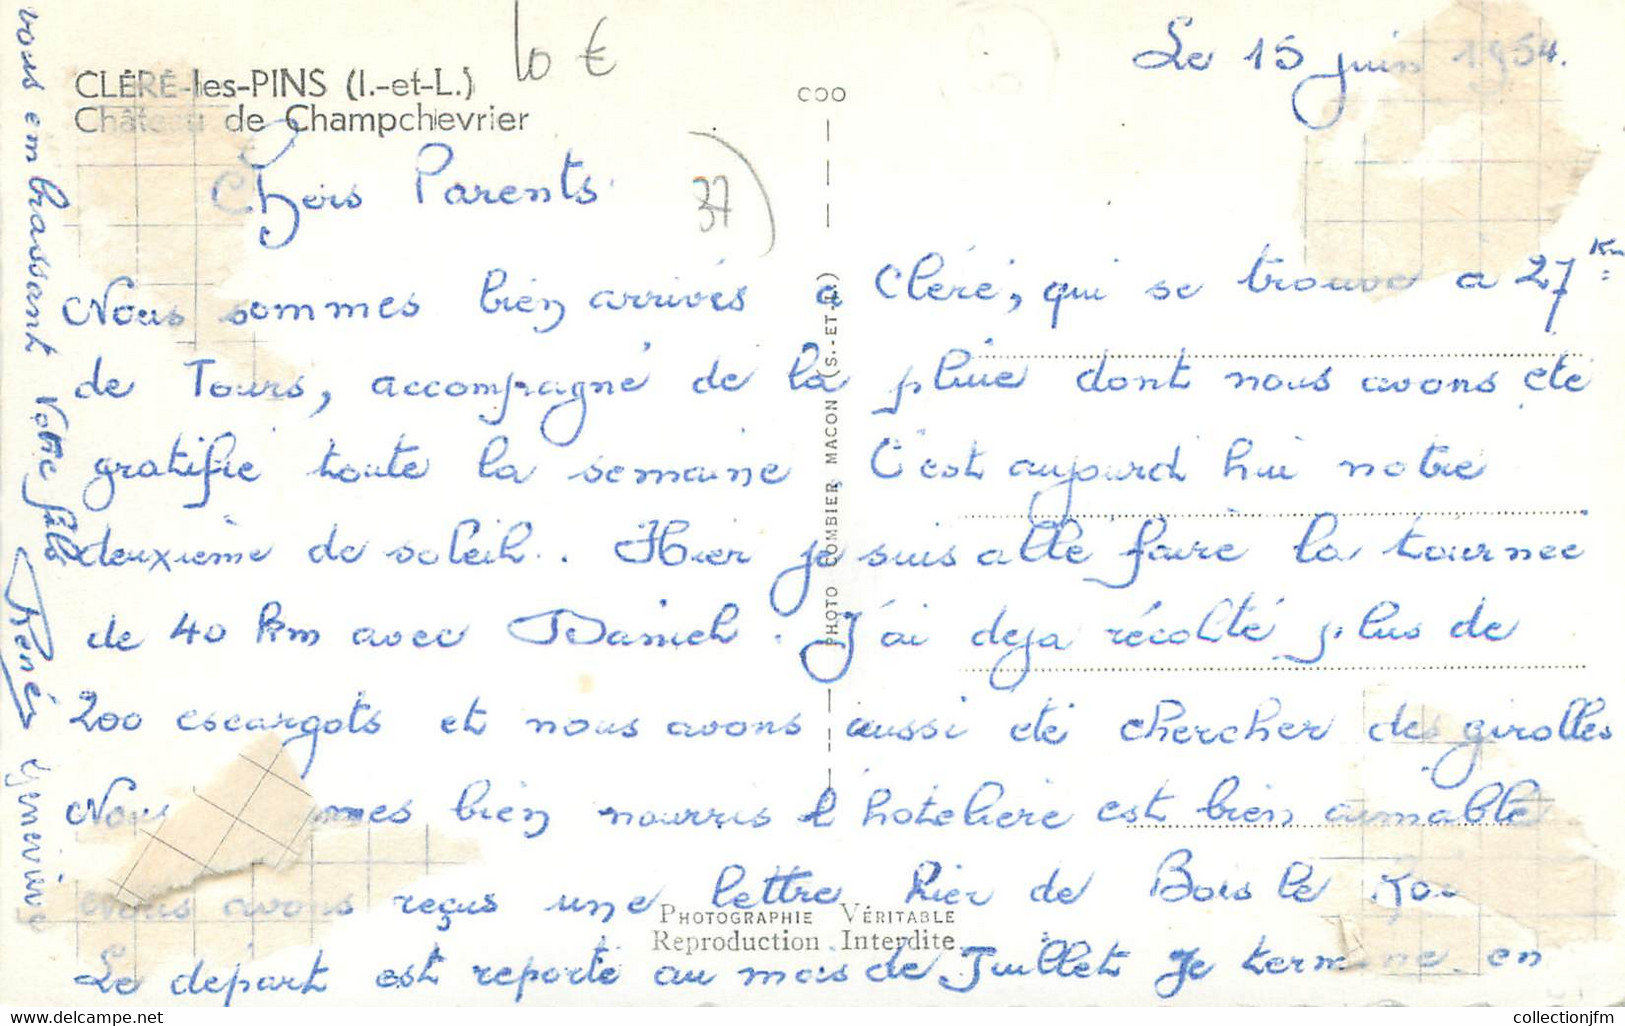 CLÉRÉ-les-PINS (I.-et-L.)
Château de Champchevrier
10 €
37
COO
Le 15 juin 1954.
Chers Parents.
Nous sommes bien arrivés à Cléré, qui se trouve à 27 Km
de Tours, accompagné de la pluie dont nous avons été
gratifié toute la semaine, C'est aujourd hui notre
deuxième de soleil.. Hier je suis allé faire la tournée
de 40 km avec Daniel. J'ai deja récolté plus de
200 escargots et nous avons aussi été chercher des girolles
Nous mmes bien nourris l'hotelière est bien aimable
Nous avons reçus une lettre hier de Bois le Roi
Le départ est reporté au mois de Juillet Je termine en
vous embrassant Votre fils
René Geneviève
PHOTO COMBIER MACON (S.-ET-L.)
PHOTOGRAPHIE VÉRITABLE
Reproduction Interdite.
www.delcampe.net
collectionjfm